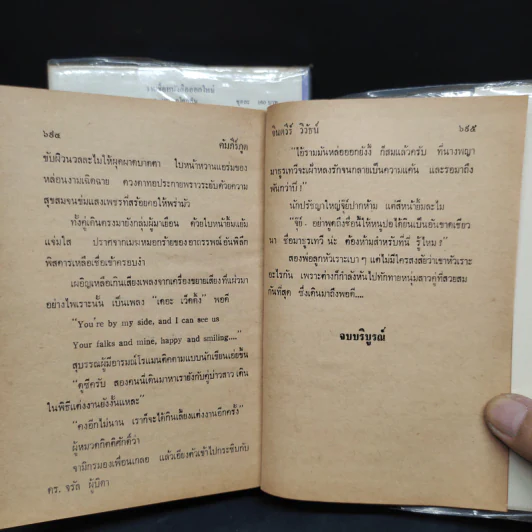 ๖๙๔
คัมภีร์ภูต
ขับผิวนวลละไมให้ผุดผาดบาดตา ใบหน้าหวานแฉล้มของ
หล่อนงามเฉิดฉาย ดวงตาทอประกายพราวระยับด้วยความ
สุขสมจนข่มแสงเพชรที่สร้อยคอให้พร่ามัว
ทั้งคู่เดินตรงมายังกลุ่มผู้มาเยือน ด้วยใบหน้ายิ้มแย้ม
แจ่มใส ปราศจากเมฆหมอกร้ายของอาถรรพณ์อันพิลึก
พิสดารเหลือเชื่อเข้าครอบงำ
เผอิญเหลือเกินเสียงเพลงจากเครื่องขยายเสียงที่แผ่วมา
อย่างไพเราะนั้น เป็นเพลง "เดอะ เว็ดดิ้ง" พอดี
"You're by my side, and I can see us
Your falks and mine, happy and smiling...."
สุบรรณผู้มีอารมณ์โรแมนติคตามแบบนักเขียนเอ่ยขึ้น
"ดูซีครับ สองคนนี่เดินมาหาเรายังกับคู่บ่าวสาว เดิน
ในพิธีแต่งงานยังงั้นแหละ"
"คงอีกไม่นาน เราก็จะได้กินเลี้ยงแต่งงานอีกครั้ง"
ผู้หมวดกิตติศักดิ์ว่า
จามีกรมองเพื่อนเกลอ แล้วเอียงตัวเข้าไปกระซิบกับ
ดร. จรัล ผู้บิดา
จินตวีร์ วิวัธน์
๖๙๕
"ไอ้รามมันหล่อออกยังงี้ ก็สมแล้วครับ ที่นางพญา
มายุรเทวีจะเฝ้าหลงรักจนกลายเป็นความแค้น และรอมาถึง
พันกว่าปี !"
นักปรัชญาใหญ่จุ๊ยปากห้าม แต่สีหน้ายิ้มละไม
"จุ๊ย์. อย่าพูดถึงชื่อนี้ให้หนูปอได้ยินเป็นอันขาดเชียว
นา ชื่อมายุรเทวี น่ะ ต้องห้ามสำหรับที่นี่ รู้ไหม ?"
สองพ่อลูกหัวเราะเบา ๆ แต่ไม่มีใครสงสัยว่าเขาหัวเราะ
อะไรกัน เพราะต่างก็กำลังหันไปทักทายหนุ่มสาวคู่ที่สวยสม
กันที่สุด ซึ่งเดินมาถึงพอดี....
จบบริบูรณ์